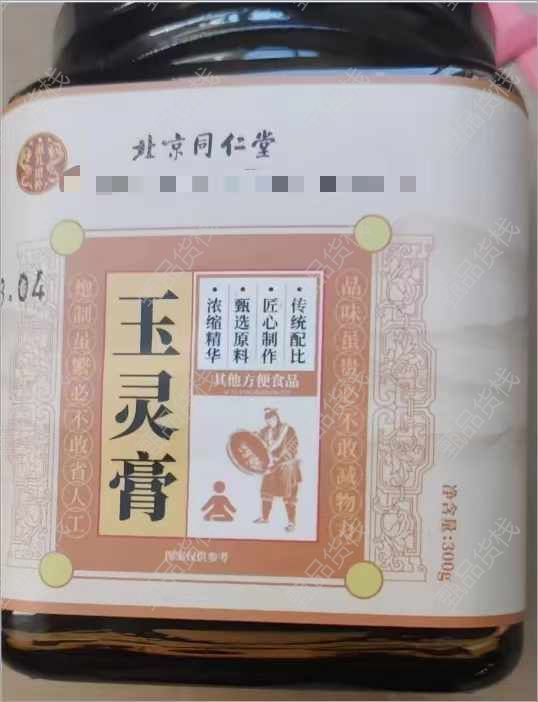 北京同仁堂
3.04
玉灵膏
传统配比
匠心制作
甄选原料
浓缩精华
其他方便食品
炮制虽繁必不敢省人工
品味虽贵必不敢减物力
图案仅供参考
净含量:300g
臻品货栈